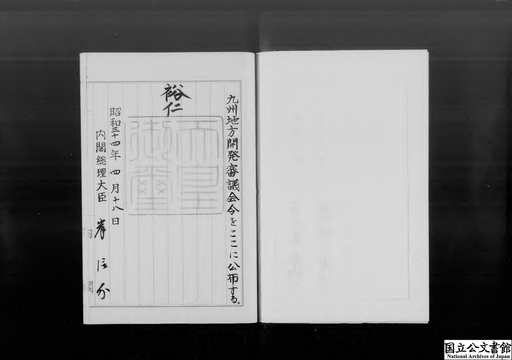 九州地方開発審議会令をここに公布する。
裕仁
天皇御璽
昭和三十四年四月十八日
内閣総理大臣 岸信介
国立公文書館
National Archives of Japan